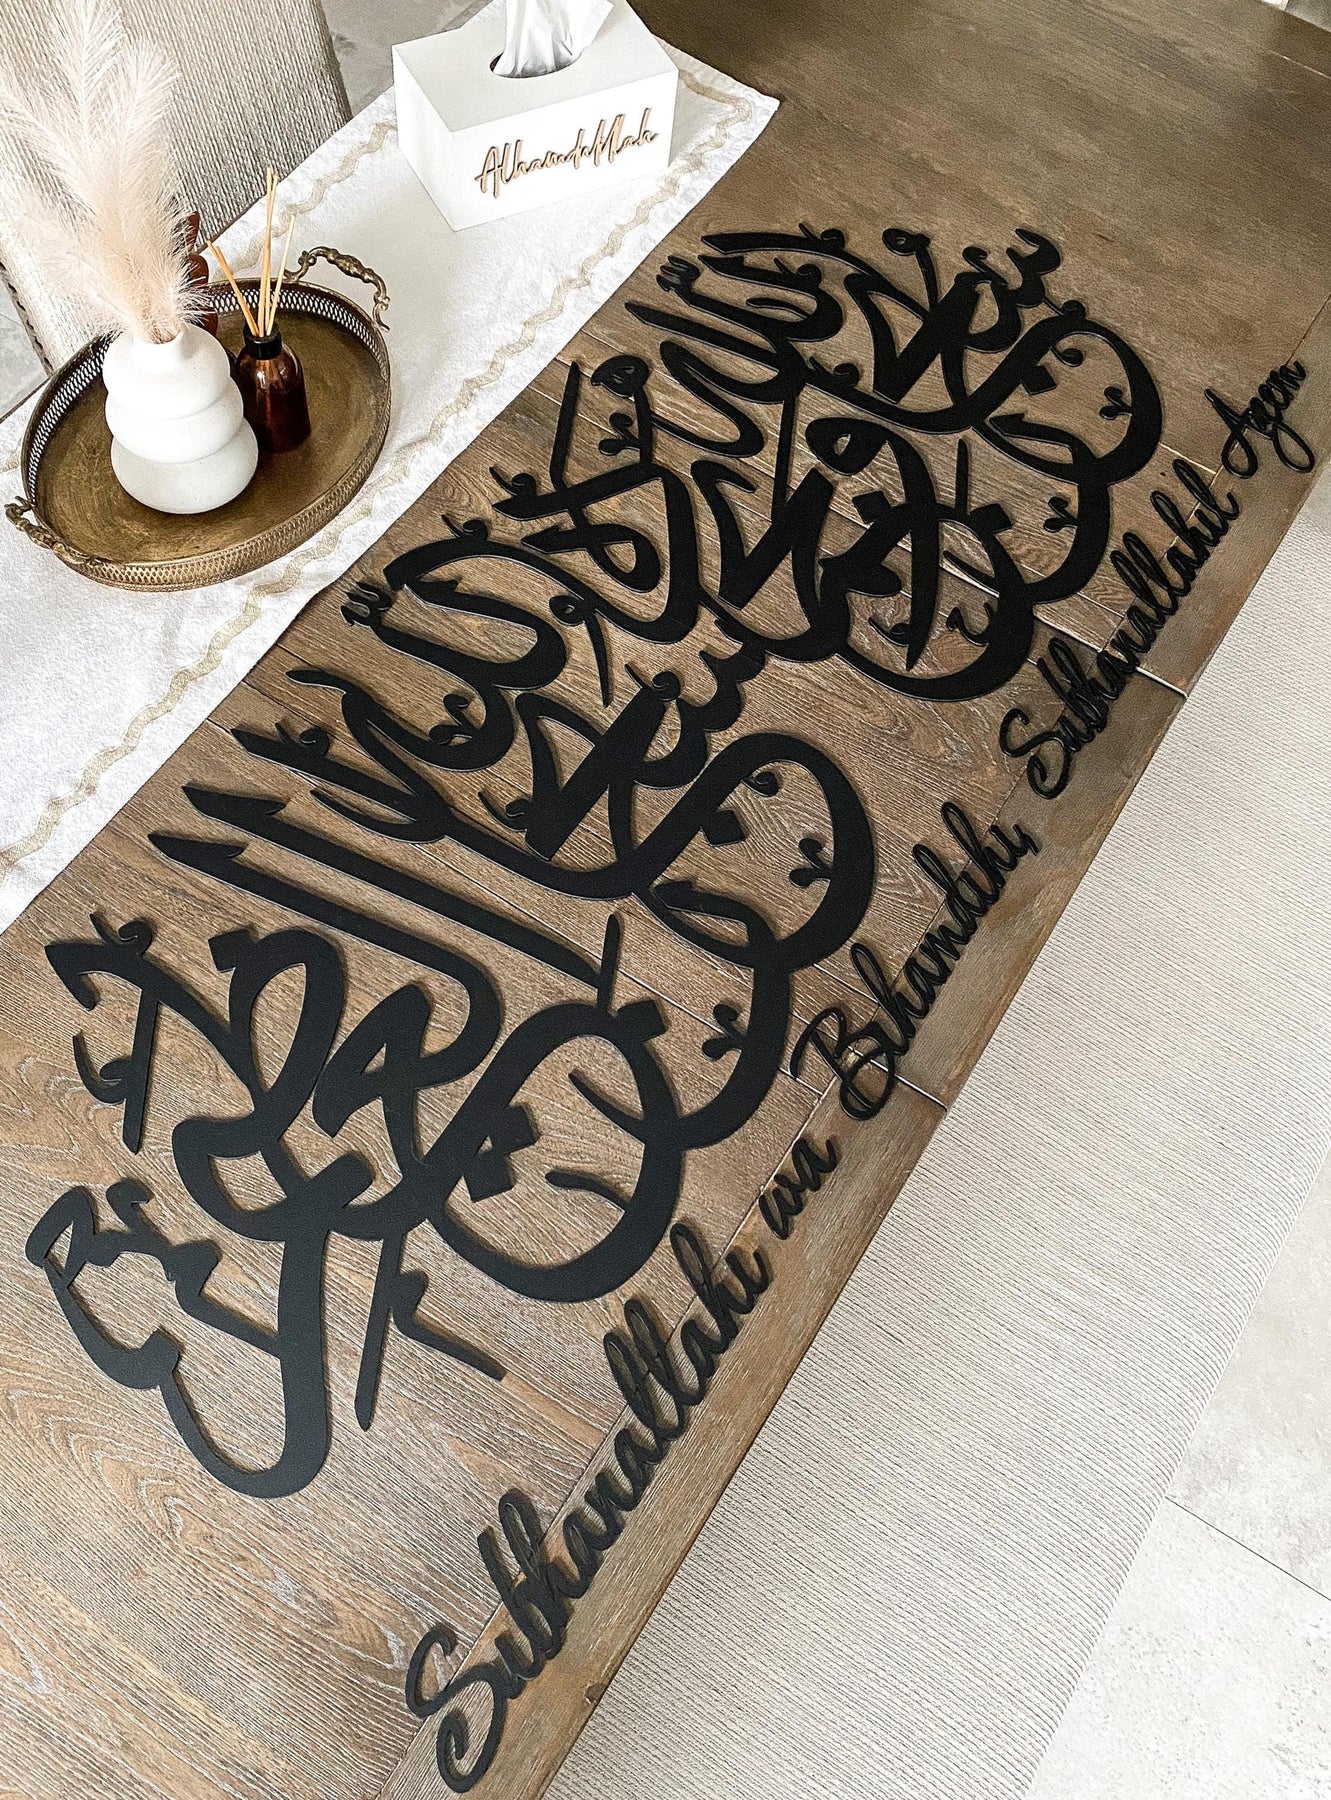 Alhamdulillah
سبحان الله وبحمده سبحان الله العظيم
Subhanallahi wa Bihamdihi, Subhanallahil Azeem